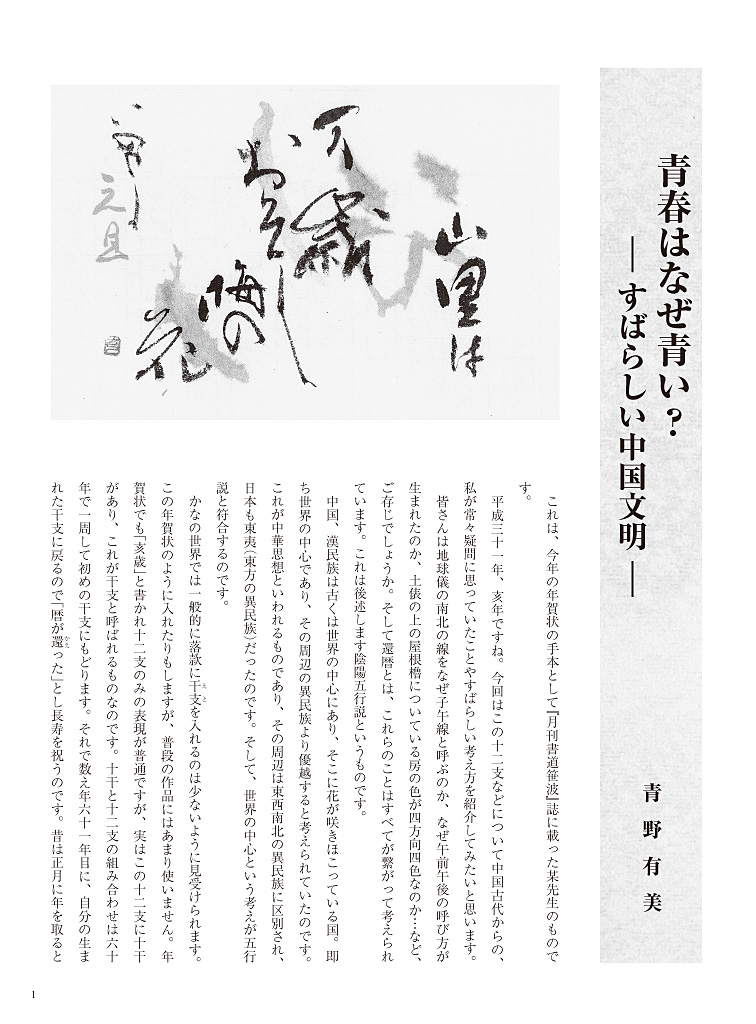 青春はなぜ青い？
― すばらしい中国文明 ―
青野有美
山里は
万歳
おそし
梅の
花
元旦
これは、今年の年賀状の手本として『月刊書道笹波』誌に載った某先生のもので
す。
平成三十一年、亥年ですね。今回はこの十二支などについて中国古代からの、
私が常々疑問に思っていたことやすばらしい考え方を紹介してみたいと思います。
皆さんは地球儀の南北の線をなぜ子午線と呼ぶのか、なぜ午前午後の呼び方が
生まれたのか、土俵の上の屋根櫓についている房の色が四方向四色なのか…など、
ご存じでしょうか。そして還暦とは、これらのことはすべてが繋がって考えられ
ています。これは後述します陰陽五行説というものです。
中国、漢民族は古くは世界の中心にあり、そこに花が咲きほこっている国。即
ち世界の中心であり、その周辺の異民族より優越すると考えられていたのです。
これが中華思想といわれるものであり、その周辺は東西南北の異民族に区別され、
日本も東夷（東方の異民族）だったのです。そして、世界の中心という考えが五行
説と符合するのです。
かなの世界では一般的に落款に干支（えと）を入れるのは少ないように見受けられます。
この年賀状のように入れたりもしますが、普段の作品にはあまり使いません。年
賀状でも「亥歳」と書かれ十二支のみの表現が普通ですが、実はこの十二支に十干
があり、これが干支と呼ばれるものなのです。十干と十二支の組み合わせは六十
年で一周して初めの干支にもどります。それで数え年六十一年目に、自分の生ま
れた干支に戻るので「暦が還（かえ）った」とし長寿を祝うのです。昔は正月に年を取ると
1